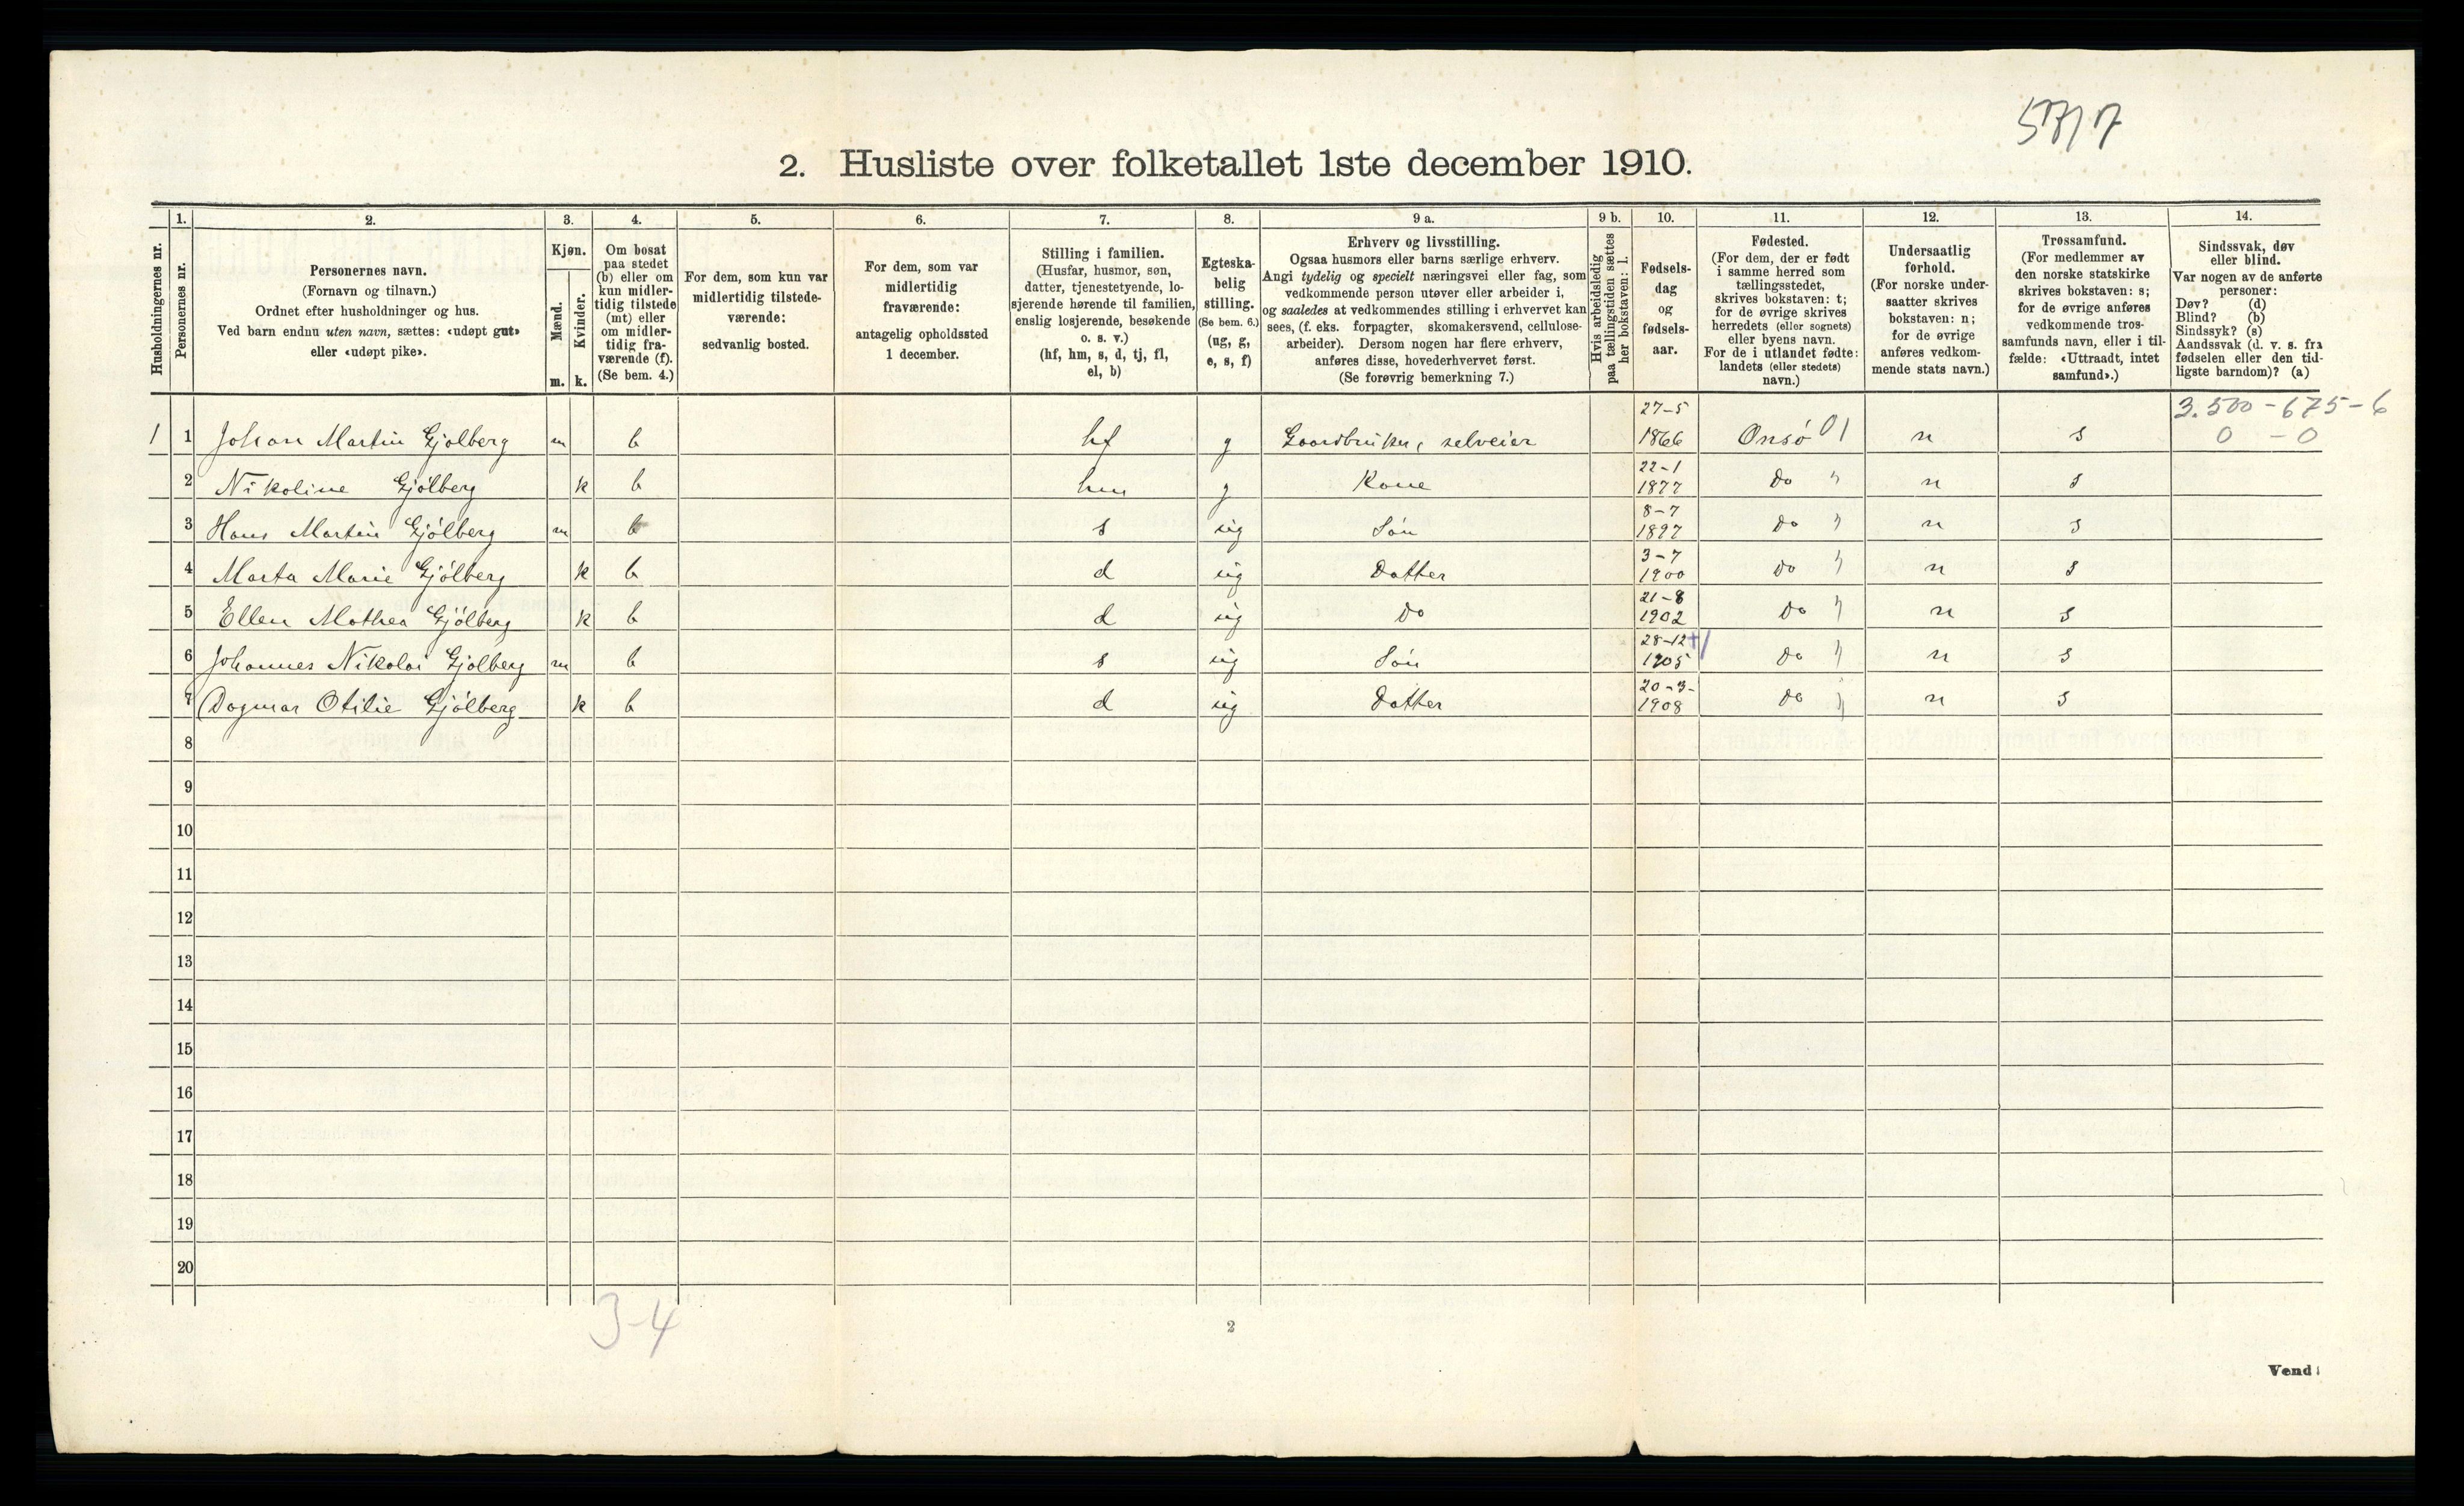 57/7
2. Husliste over folketallet 1ste december 1910.
Husholdningernes nr.
1.
Personernes nr.
2.
Personernes navn.
(Fornavn og tilnavn.)
Ordnet efter husholdninger og hus.
Ved barn endnu uten navn, sættes: «udøpt gut»
eller «udøpt pike».
3.
Kjøn.
Mænd.
Kvinder.
m. k.
4.
Om bosat
paa stedet
(b) eller om
kun midler-
tidig tilstede
(mt) eller
om midler-
tidig fra-
værende (f).
(Se bem. 4.)
5.
For dem, som kun var
midlertidig tilstede-
værende:
sedvanlig bosted.
6.
For dem, som var
midlertidig
fraværende:
antagelig opholdssted
1 december.
7.
Stilling i familien.
(Husfar, husmor, søn,
datter, tjenestetyende, lo-
sjerende hørende til familien,
enslig losjerende, besøkende
o. s. v.)
(hf, hm, s, d, tj, fl,
el, b)
8.
Egteska-
belig
stilling.
(Se bem. 6.)
(ug, g,
e, s, f)
9 a.
Erhverv og livsstilling.
Ogsaa husmors eller barns særlige erhverv.
Angi tydelig og specielt næringsvei eller fag, som
vedkommende person utøver eller arbeider i,
og saaledes at vedkommendes stilling i erhvervet kan
sees, (f. eks. forpagter, skomakersvend, cellulose-
arbeider). Dersom nogen har flere erhverv,
anføres disse, hovederhvervet først.
(Se forøvrig bemerkning 7.)
9 b.
Hvis arbeidsledig
paa tællingstiden sættes
her bokstaven: l.
10.
Fødsels-
dag
og
fødsels-
aar.
11.
Fødested.
(For dem, der er født
i samme herred som
tællingsstedet,
skrives bokstaven: t;
for de øvrige skrives
herredets (eller sognets)
eller byens navn.
For de i utlandet fødte:
landets (eller stedets)
navn.)
12.
Undersaatlig
forhold.
(For norske under-
saatter skrives
bokstaven: n;
for de øvrige
anføres vedkom-
mende stats navn.)
13.
Trossamfund.
(For medlemmer av
den norske statskirke
skrives bokstaven: s;
for de øvrige anføres
vedkommende tros-
samfunds navn, eller i til-
fælde: «Uttraadt, intet
samfund».)
14.
Sindssvak, døv
eller blind.
Var nogen av de anførte
personer:
Døv? (d)
Blind? (b)
Sindssyk? (s)
Aandssvak (d. v. s. fra
fødselen eller den tid-
ligste barndom)? (a)
3.500 - 675 - 6
0 - 0
1 1 Johan Martin Gjølberg m b hf g Gaardbruker, selveier 27-5 1866 Onsø 01 n s
2 Nikoline Gjølberg k b hm g Kone 22-1 1877 do " n s
3 Hans Martin Gjølberg m b s ug Søn 8-7 1897 do " n s
4 Marta Marie Gjølberg k b d ug Datter 3-7 1900 do " n s
5 Ellen Mathea Gjølberg k b d ug do 21-8 1902 do " n s
6 Johannes Nikolai Gjølberg m b s ug Søn 28-12 1905 do " n s
7 Dagmar Otilie Gjølberg k b d ug Datter 20-3- 1908 do " n s
8
9
10
11
12
13
14
15
16
17
18
19
20
3-4
2
Vend